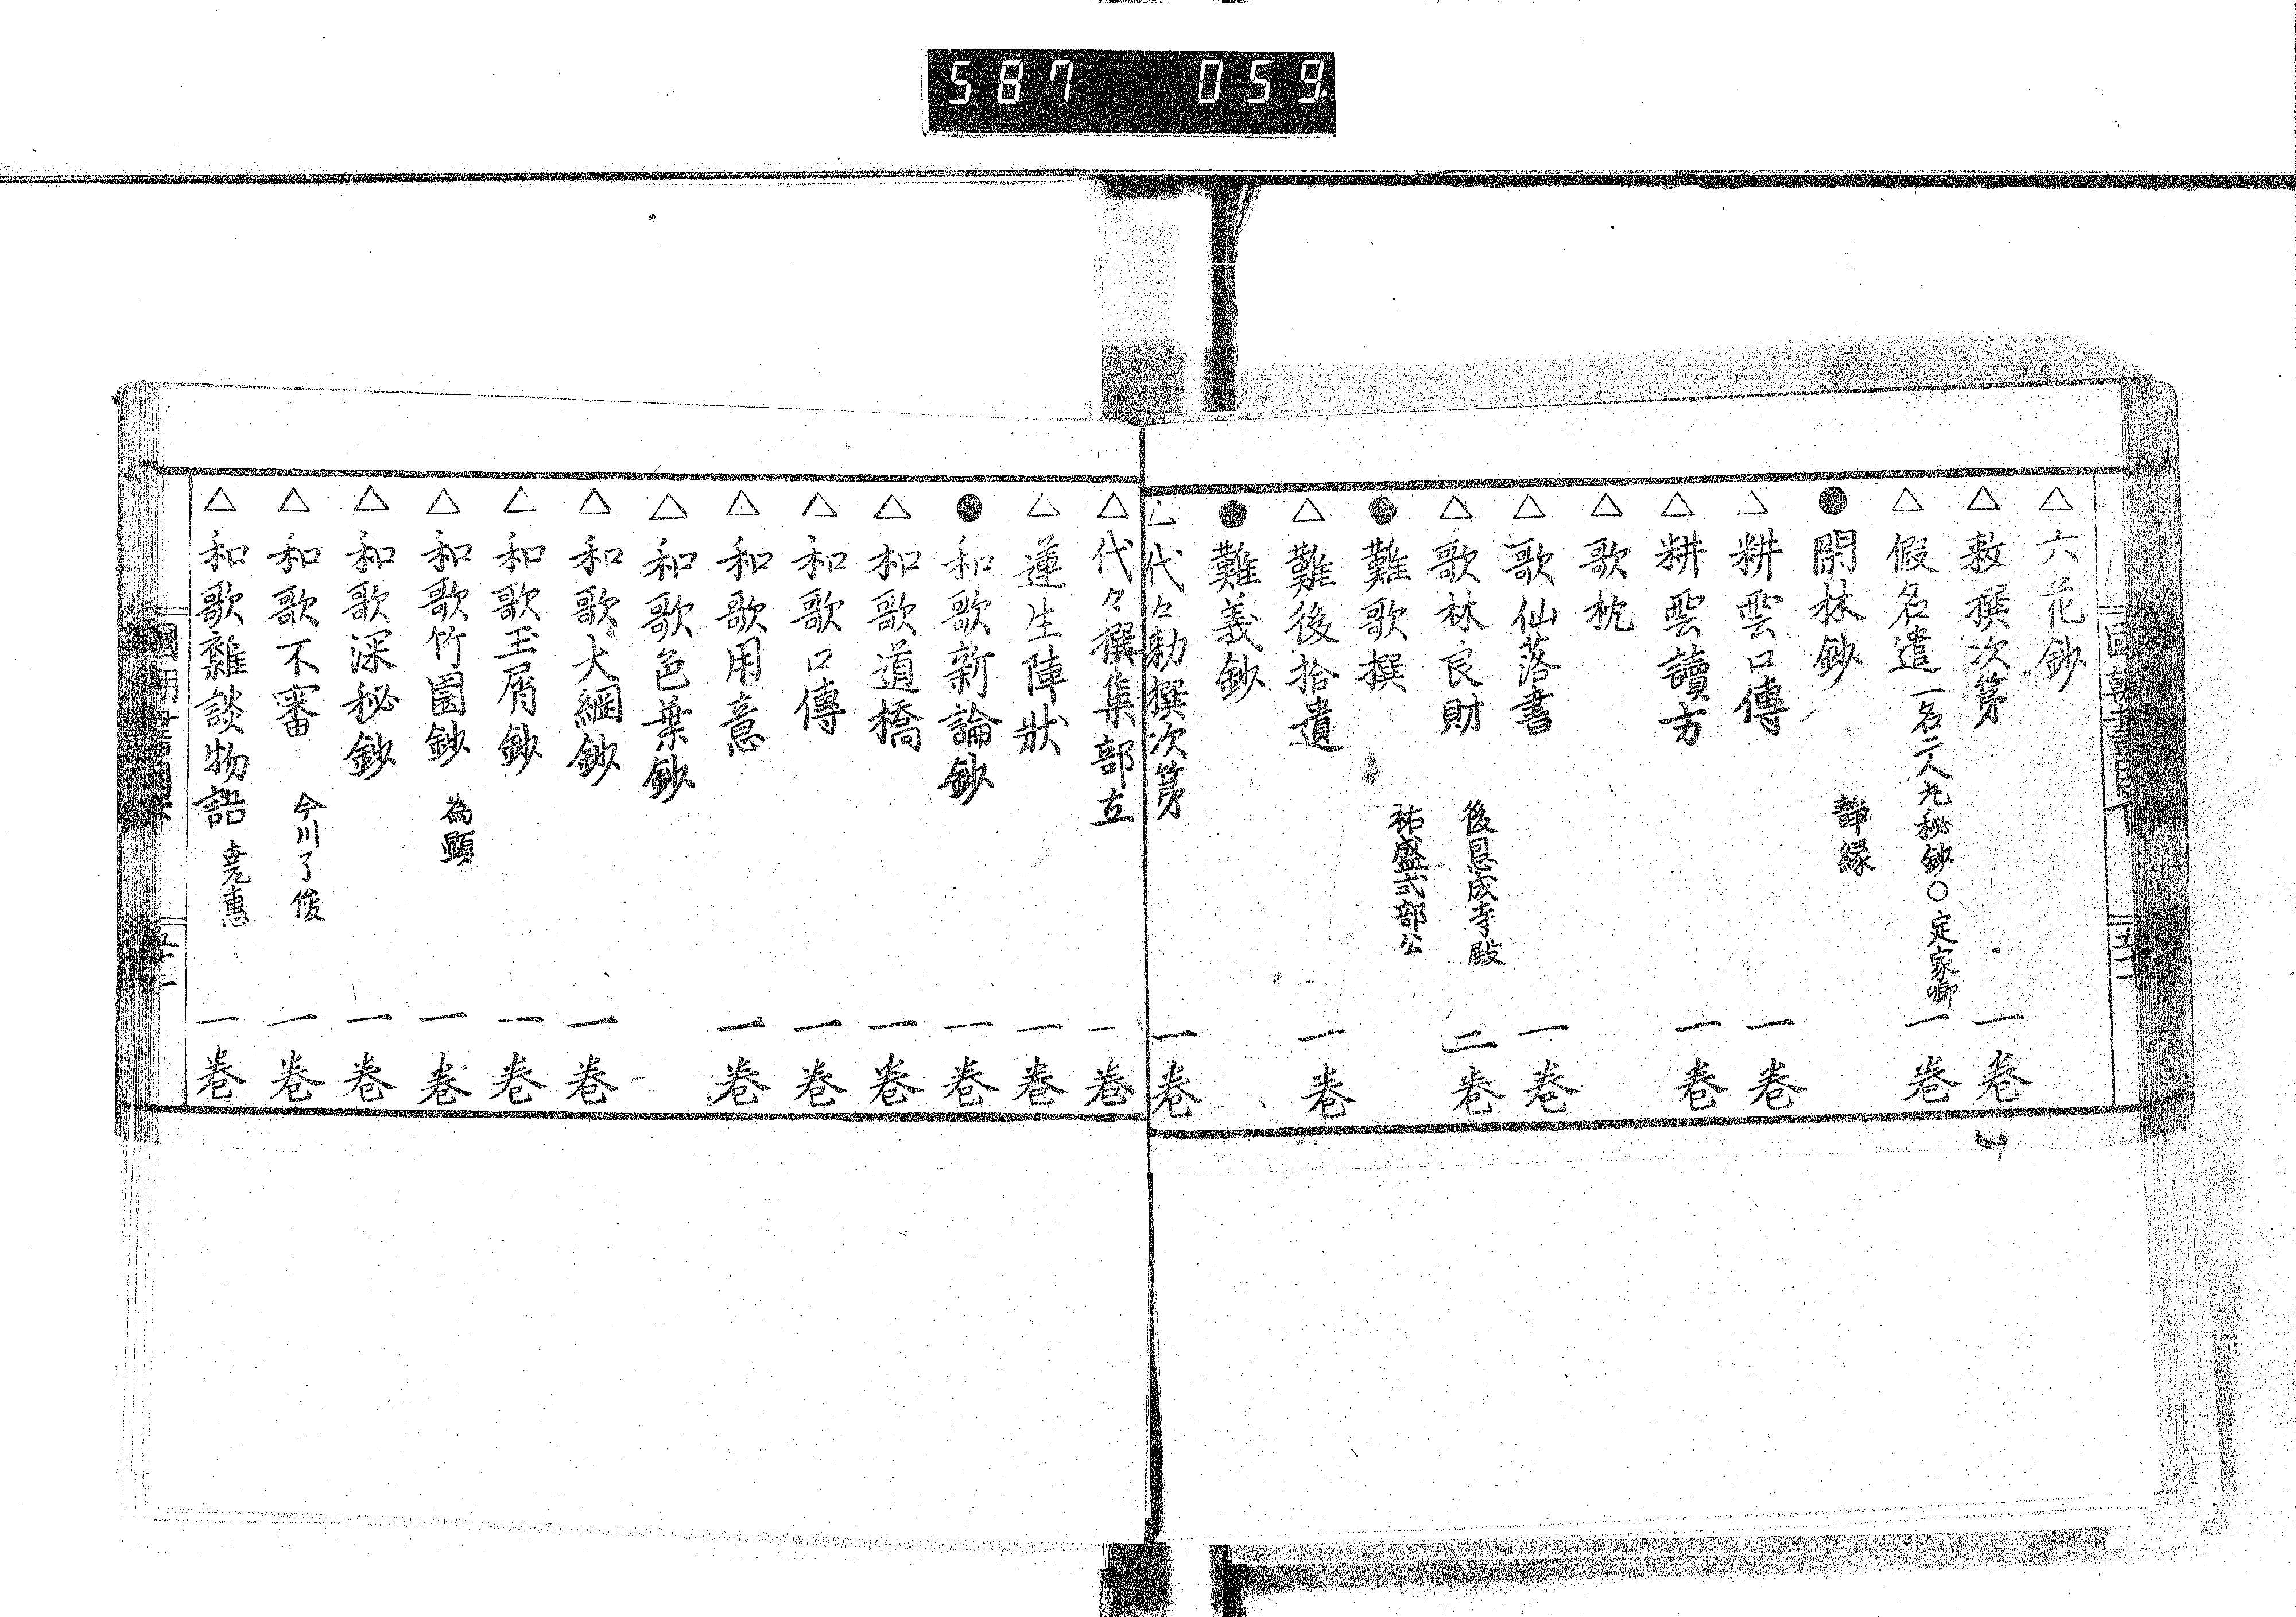 587 059
△六花鈔
△敕撰次第 一卷
△假名遣 一名二人丸秘鈔〇定家卿 一卷
●閑林鈔 靜縁
△耕雲口傳 一卷
△耕雲讀方 一卷
△歌枕
△歌仙落書 一卷
△歌林良財 後恩成寺殿 二卷
●難歌撰 祐盛式部公
△難後拾遺 一卷
●難義鈔
△代々勅撰次第 一卷
△代々撰集部立 一卷
△蓮生陣狀 一卷
●和歌新論鈔 一卷
△和歌道橋 一卷
△和歌口傳 一卷
△和歌用意 一卷
△和歌色葉鈔
△和歌大綱鈔 一卷
△和歌玉屑鈔 一卷
△和歌竹園鈔 為顕 一卷
△和歌深秘鈔 一卷
△和歌不審 今川了俊 一卷
△和歌雜談物語 堯惠 一卷